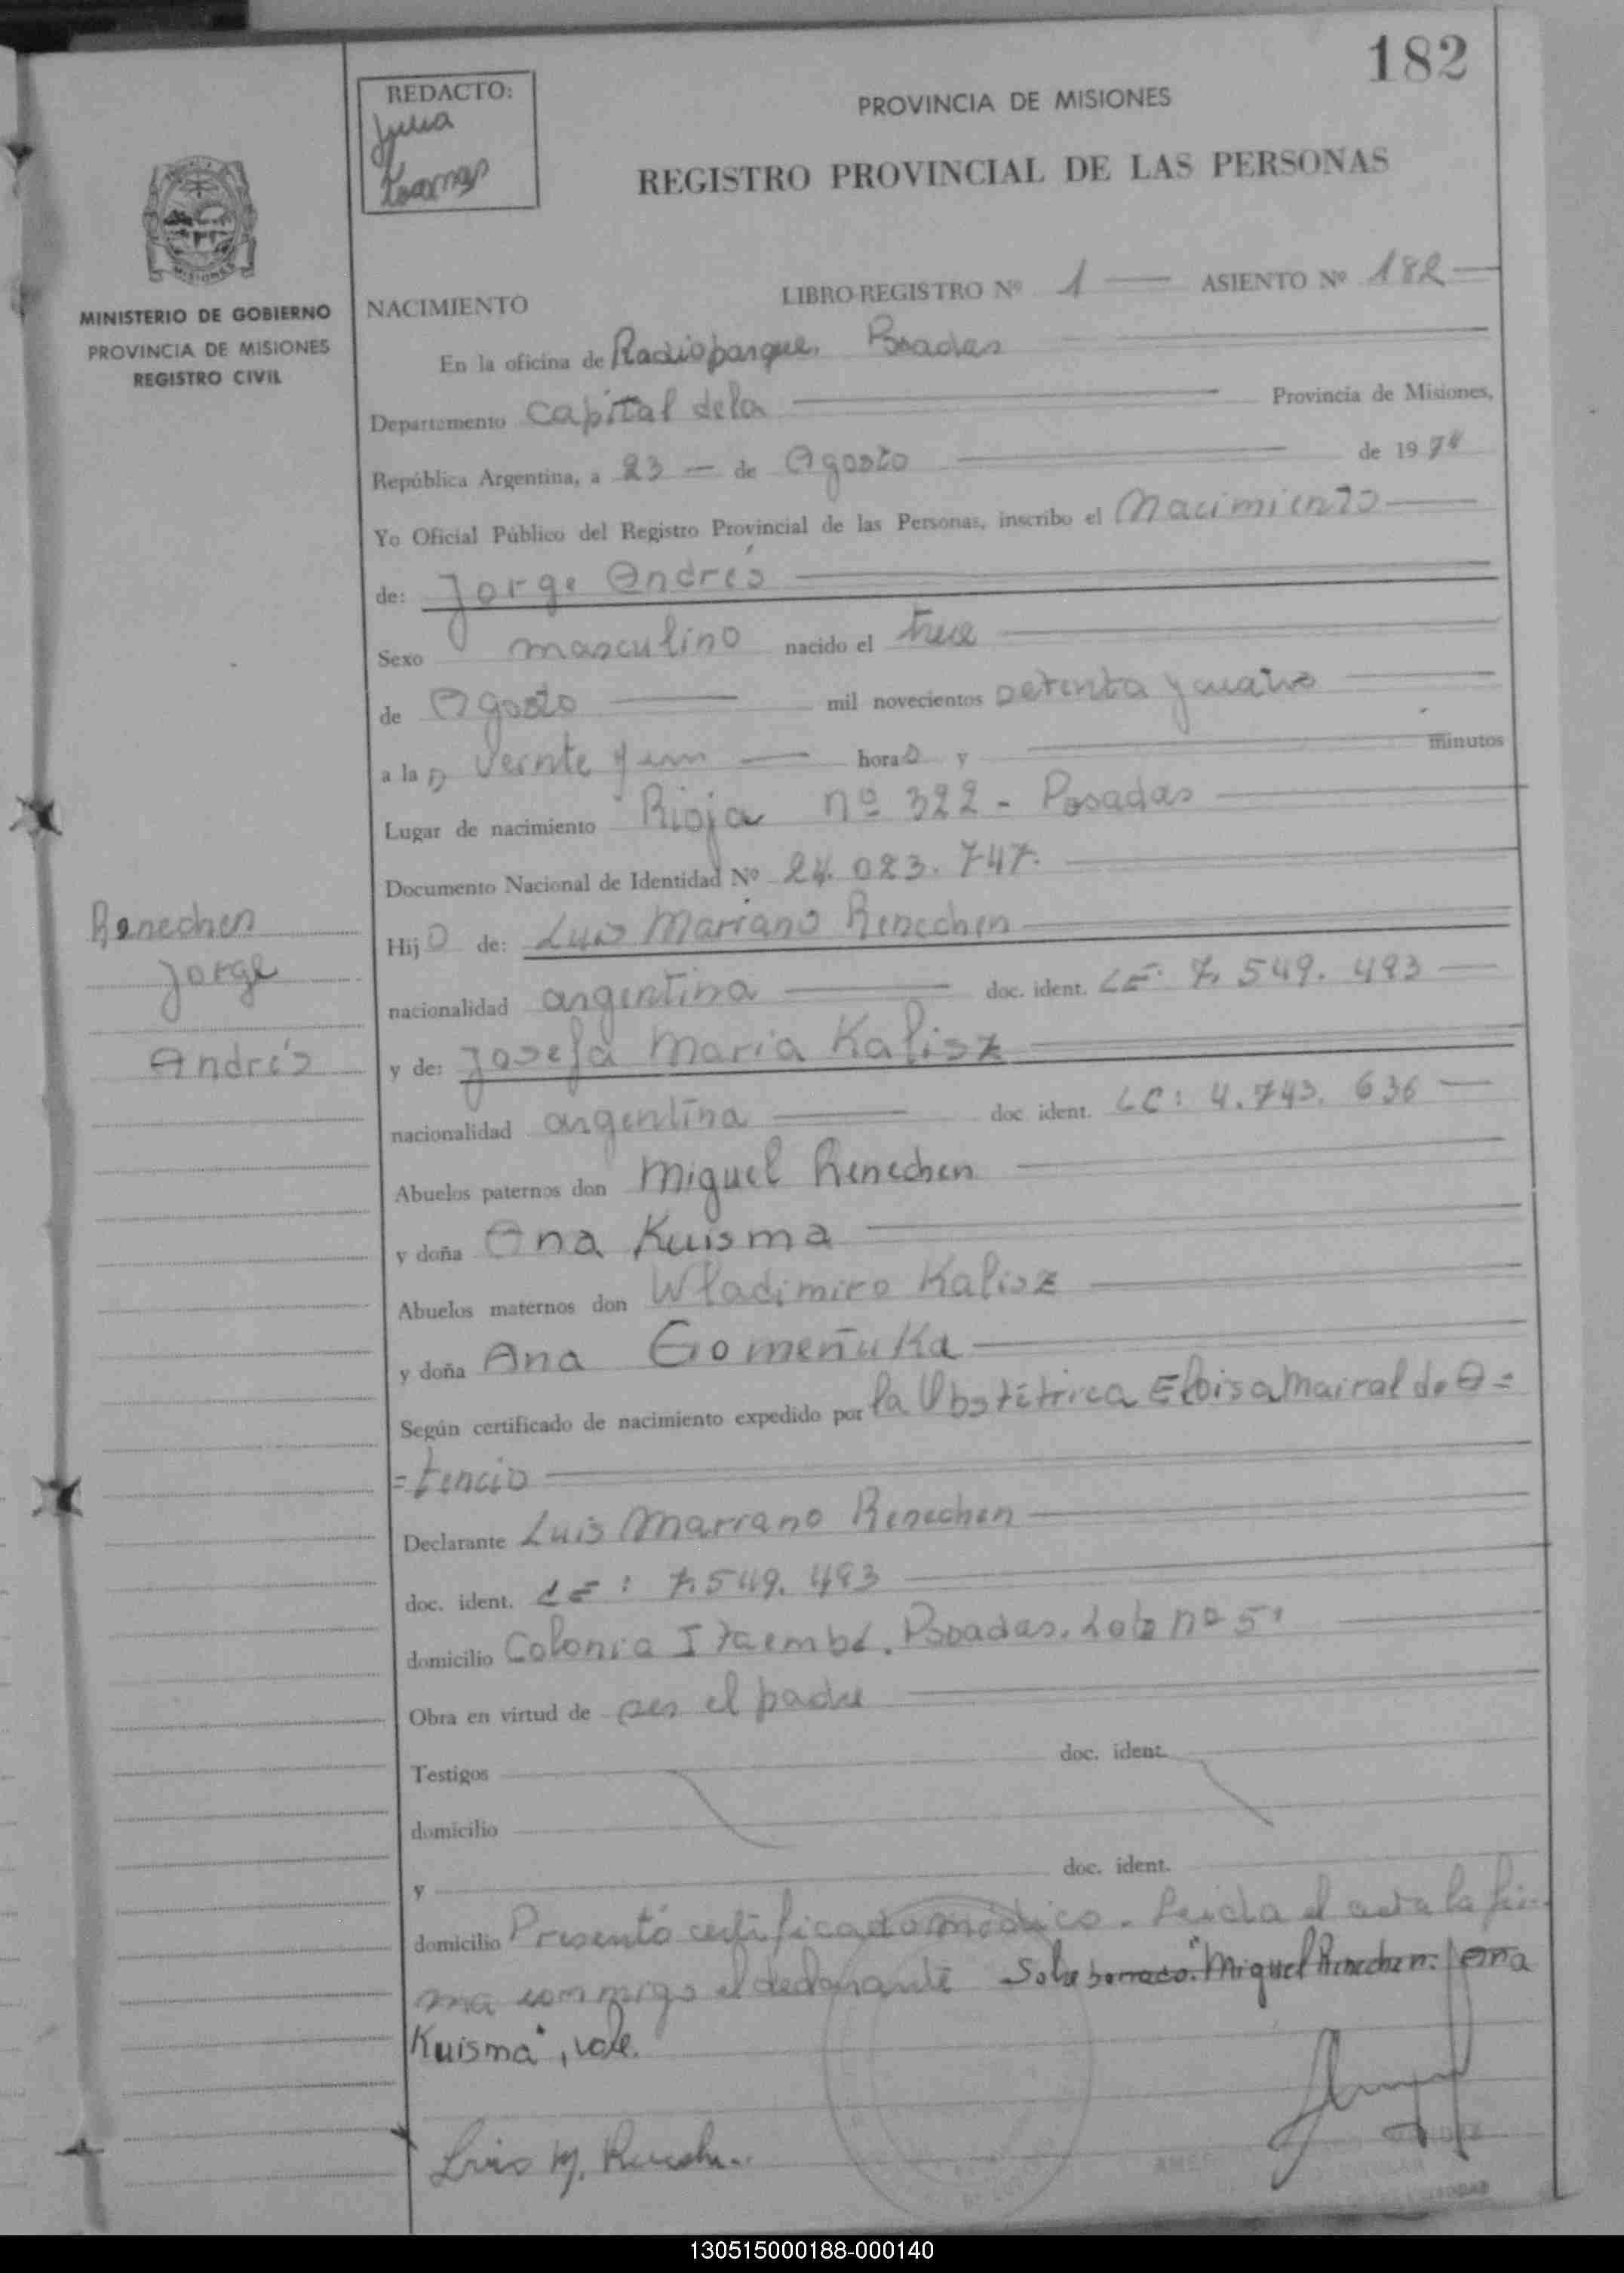 182
REDACTO:
Julia
PROVINCIA DE MISIONES
REGISTRO PROVINCIAL DE LAS PERSONAS
MISIONES
MINISTERIO DE GOBIERNO
PROVINCIA DE MISIONES
REGISTRO CIVIL
NACIMIENTO LIBRO REGISTRO Nº 1 ASIENTO Nº 182
En la oficina de Radioparque. Posadas
Departamento Capital dela Provincia de Misiones,
República Argentina, a 23 de Agosto de 1974
Yo Oficial Público del Registro Provincial de las Personas, inscribo el Nacimiento
de: Jorge Andrés
Sexo masculino nacido el trece
de Agosto mil novecientos setenta y cuatro
a las veinte y un horas y minutos
Lugar de nacimiento Rioja nº 322 - Posadas
Documento Nacional de Identidad Nº 24.023.747.
Hijo de: Luis Mariano Renechen
nacionalidad argentina doc. ident. LE: 7.549.493
y de: Josefa Maria Kalisz
nacionalidad argentina doc ident. LC: 4.743.636
Abuelos paternos don Miguel Renechen
y doña Ana Kuisma
Abuelos maternos don Wladimiro Kalisz
y doña Ana Gomeñuka
Según certificado de nacimiento expedido por la Obstétrica Eloisa Mairal de A=
=tencio
Declarante Luis Marrano Renechen
doc. ident. LE: 7.549.493
domicilio Colonia Itaembé. Posadas. Lote nº 5.
Obra en virtud de ser el padre
Testigos doc. ident.
domicilio
y doc. ident.
domicilio Presentó certificado médico. Leida el acta la fir-
ma conmigo el declarante Sobre borrado: "Miguel Renechen. Ana
Kuisma", vale.
Luis M. Renechen
Renechen
Jorge
Andrés
130515000188-000140